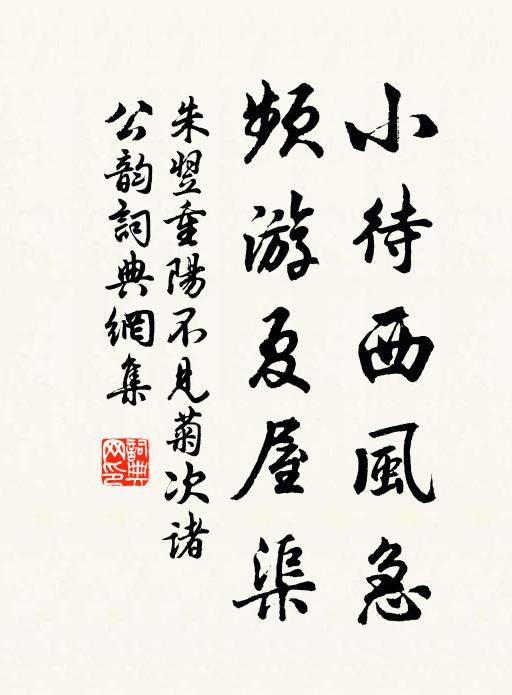 小待西風急
頻游夏屋渠
朱翌重陽不見菊次諸
公韵詞典網集
詞典网印